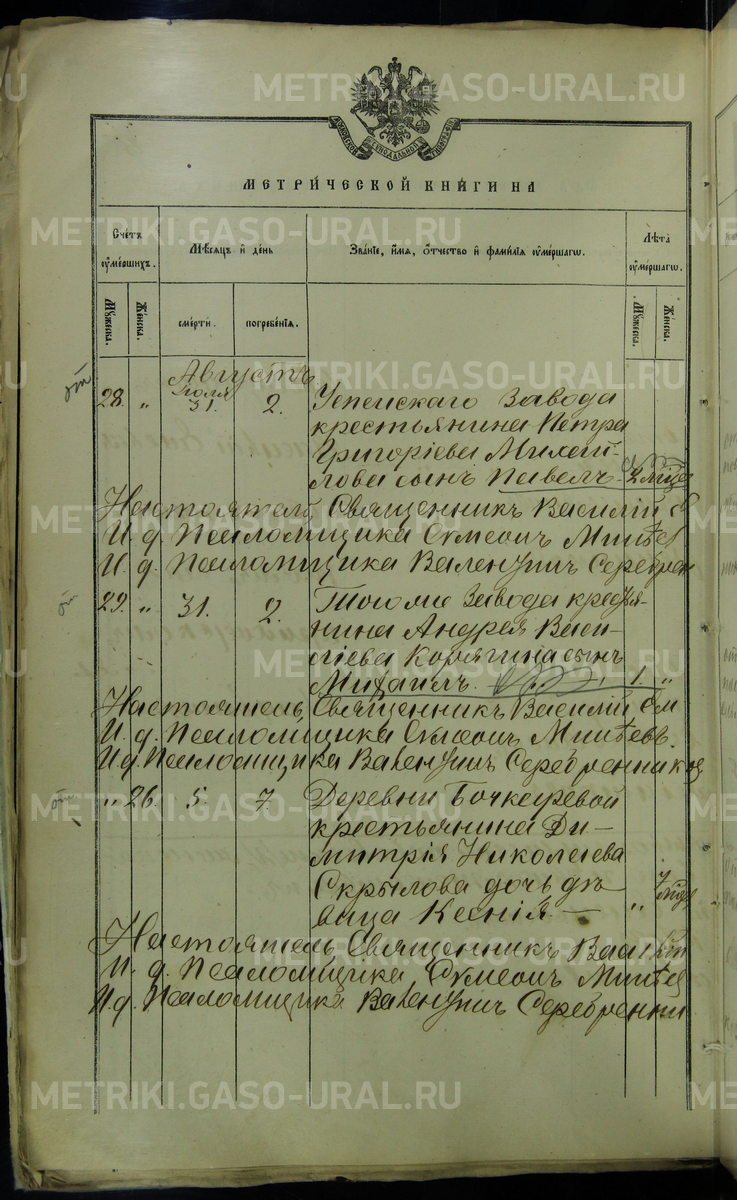 METRIKI.GASO-URAL.RU
МЕТРИЧЕСКОЙ КНИГИ НА
Счетъ умершихъ.
Мѣсяцъ и день
Званіе, имя, отчество и фамилія умершагω.
Лѣта умершагω.
Мужеска.
Женска.
смерти.
погребенія.
Мужеска.
Женска.
Августъ
от
28. „ Іюля 31. 2. Успенскаго Завода
крестьянина Петра
Григоріева Михай-
лова сынъ Павелъ 2 мѣся
Настоятель Священникъ Василій
И. д. Псаломщика Сүмеонъ
И. д. Псаломщика Валентинъ Серебрен
от
29. „ 31. 2. Тогоже Завода кресть-
янина Андрея Васи-
ліева Корягина сынъ
Михаилъ. 1. „
Настоятель, Священникъ Василій
И. д. Псаломщика Сүмеонъ
И. д. Псаломщика Валентинъ Серебренников
от
„ 26. 5. 7. Деревни Бочкаревой
крестьянина Ди-
митрія Николаева
Скрылова дочь дѣ-
вица Ксенія — „ 7 мѣся
Настоятель Священникъ Васи
И. д. Псаломщика Сүмеонъ
И. д. Псаломщика Валентинъ Серебренни
METRIKI.GASO-URAL.RU